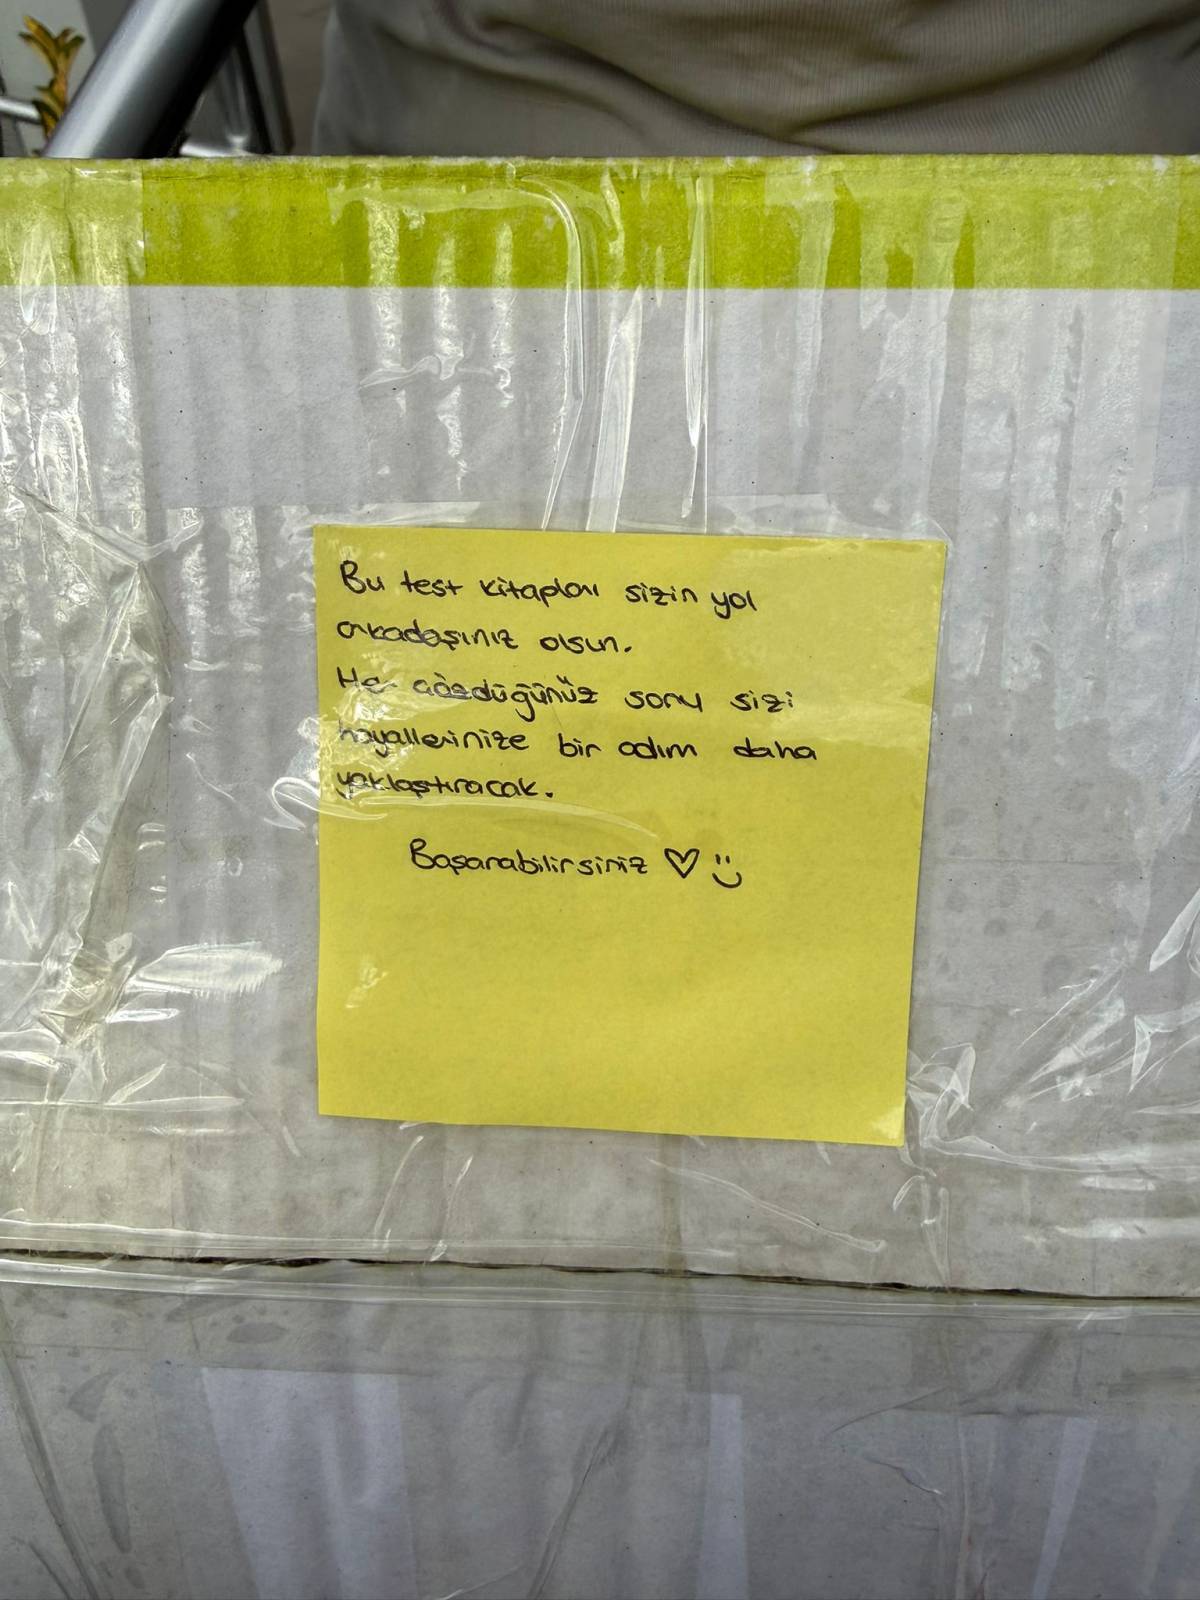 Bu test kitapları sizin yol
arkadaşınız olsun.
Her çözdüğünüz soru sizi
hayallerinize bir adım daha
yaklaştıracak.
Başarabilirsiniz ♡ :)